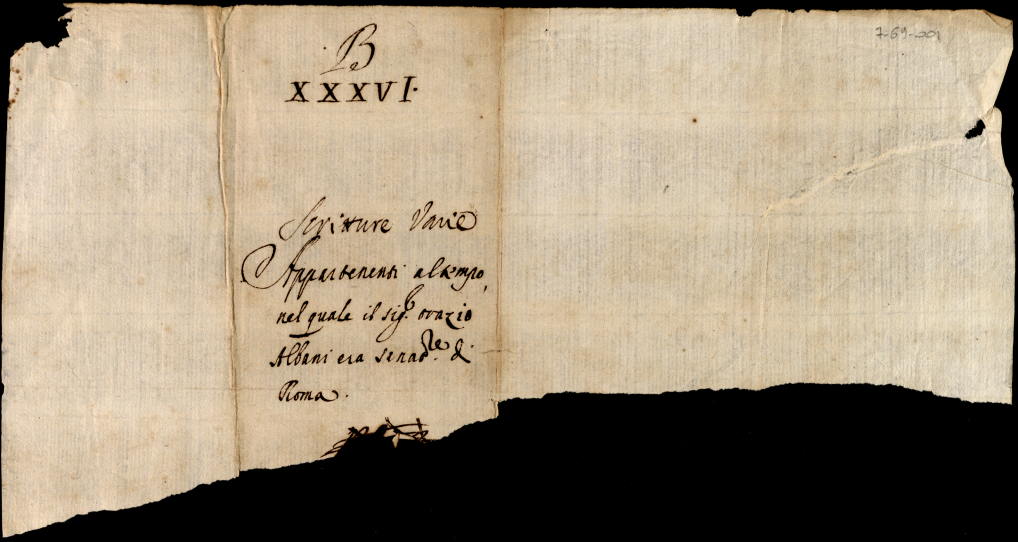 7-69-001
B
XXXVI.
Scritture Varie
Appartenenti al tempo,
nel quale il sigr. orazio
Albani era senadre. di
Roma.